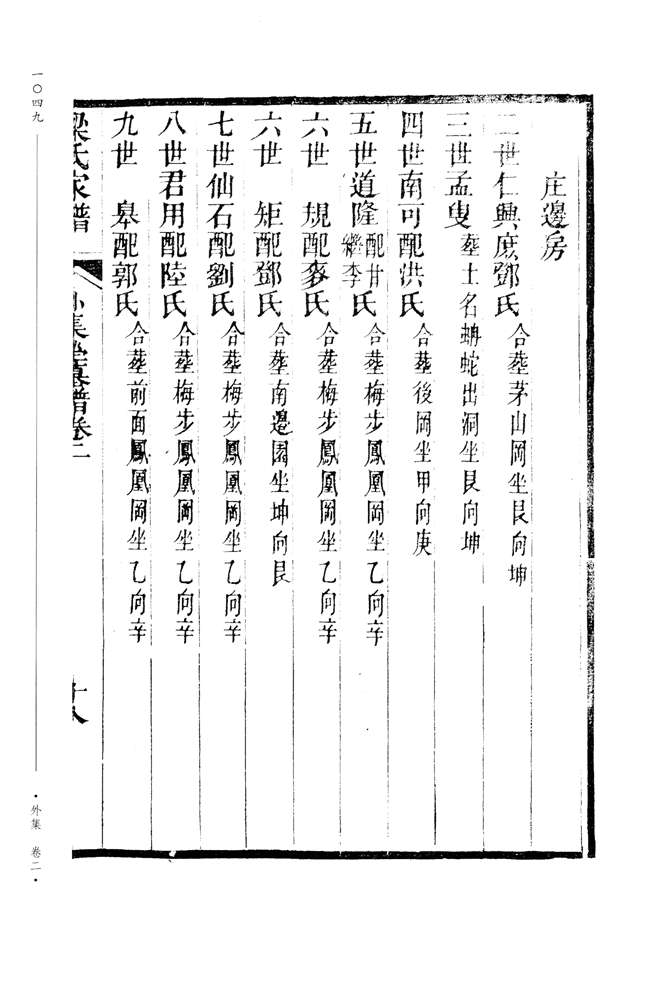 庄邊房
二世仁興庶鄧氏合葬茅山岡坐艮向坤
三世孟叟葬土名蝻蛇出洞坐艮向坤
四世南可配洪氏合葬後岡坐甲向庚
五世道隆配甘繼李氏合葬梅步鳳凰岡坐乙向辛
六世 規配麥氏合葬梅步鳳凰岡坐乙向辛
六世 矩配鄧氏合葬南邊園坐坤向艮
七世仙石配劉氏合葬梅步鳳凰岡坐乙向辛
八世君用配陸氏合葬梅步鳳凰岡坐乙向辛
九世 皋配郭氏合葬前面鳳凰岡坐乙向辛
梁氏家譜 外集塋墓譜卷二 十八
一〇四九
·外集 卷二·